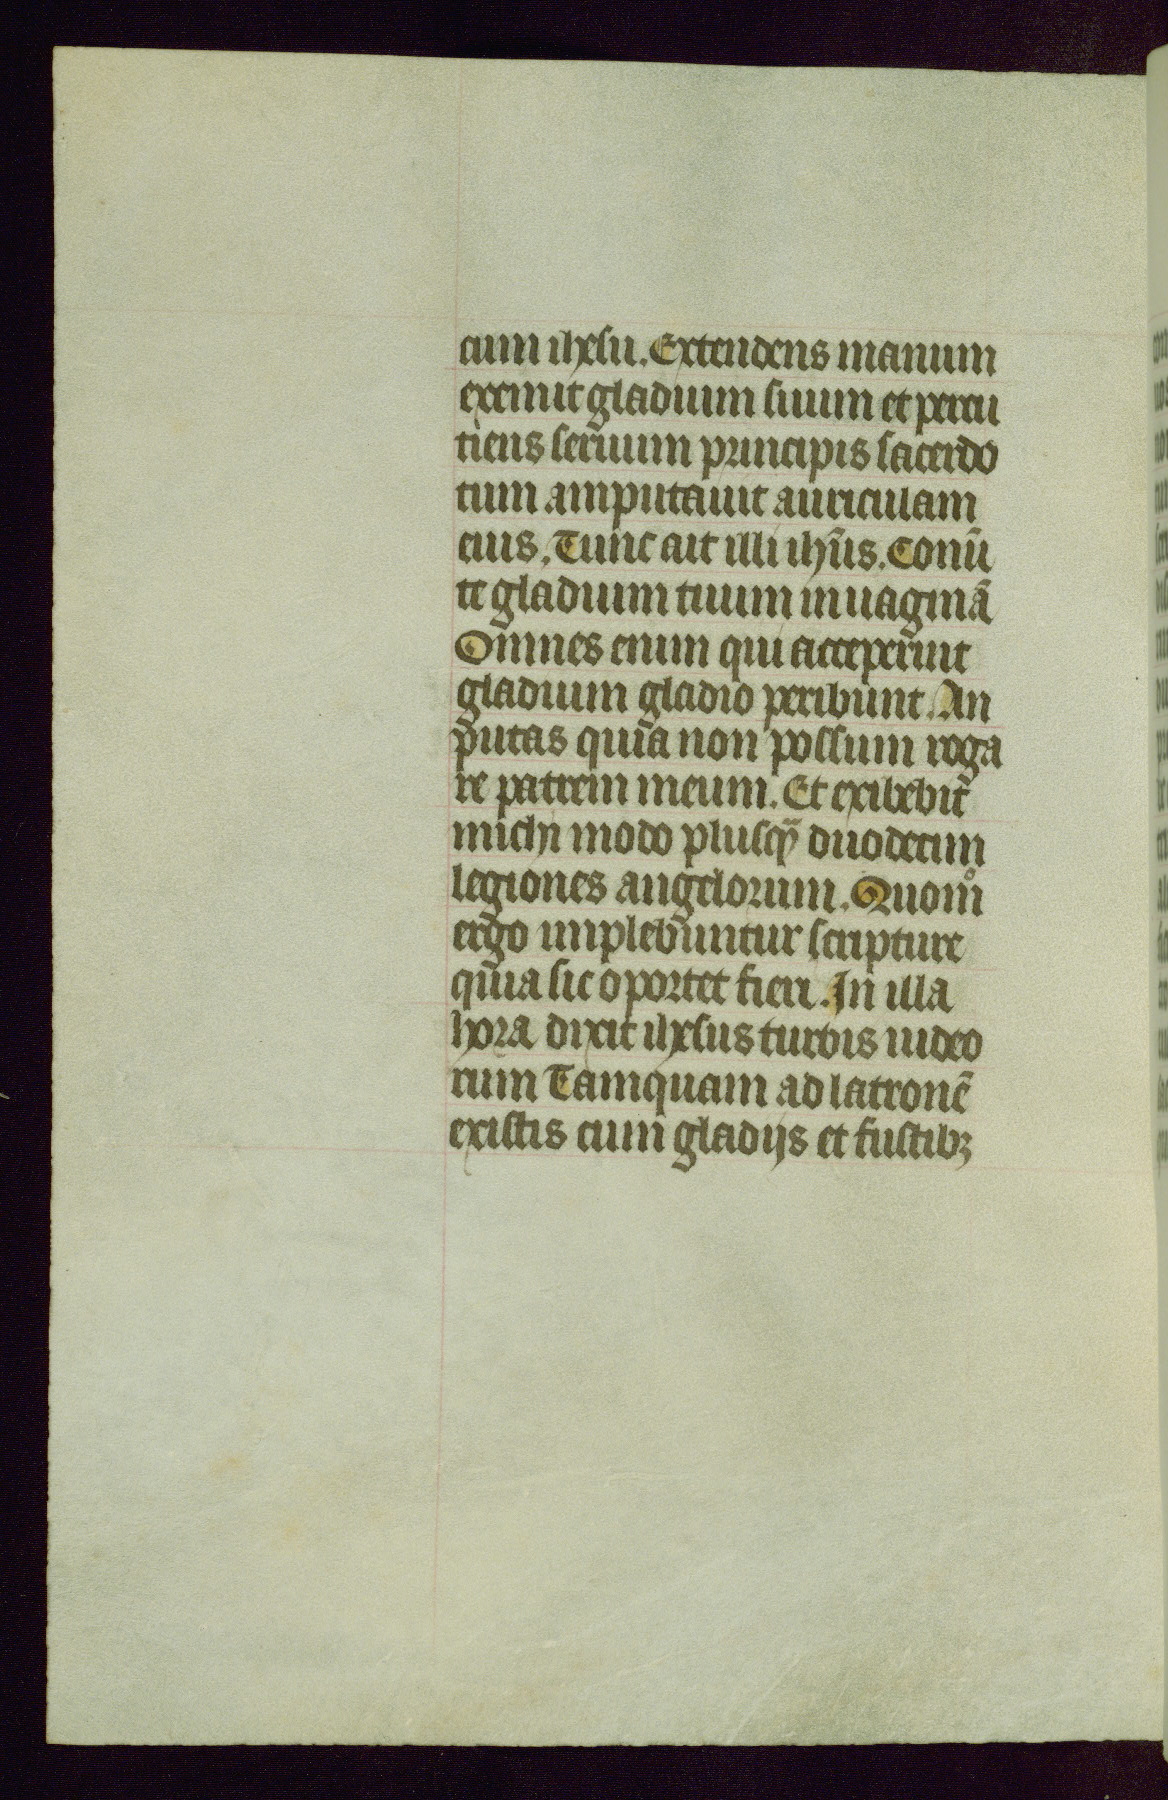 cum ihesu. Extendens manum
exemit gladium suum et percu
tiens seruum principis sacerdo
tum amputauit auriculam
eius. Tunc ait illi ihūs. Conū
te gladium tuum in uaginā
Omnes enim qui acceperūnt
gladium gladio peribunt. An
putas quia non possum roga
re patrem meum. Et exibebit
michi modo plusqȝ duodecim
legiones angelorum. Quomº
ergo implebuntur scripture
quia sic oportet fieri. In illa
hora dixit ihesus turbis iudeo
rum Tamquam ad latronē
existis cum gladijs et fustibȝ